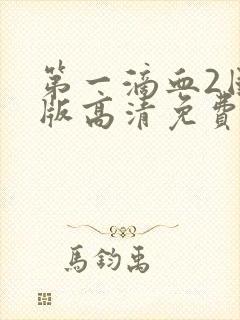 第一滴血2國
版高清免費
馬鈞禹